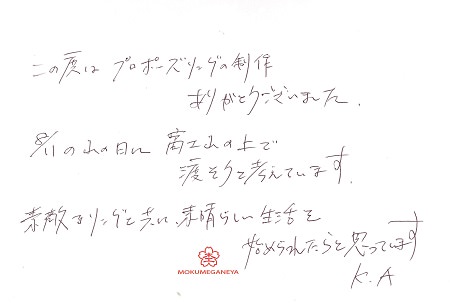 この度は プロポーズリングの制作
ありがとうございました.
8/11の山の日に 富士山の上で
渡そうと考えています.
素敵なリングと共に、素晴らしい生活を
始められたらと思ってます
K.A
MOKUMEGANEYA